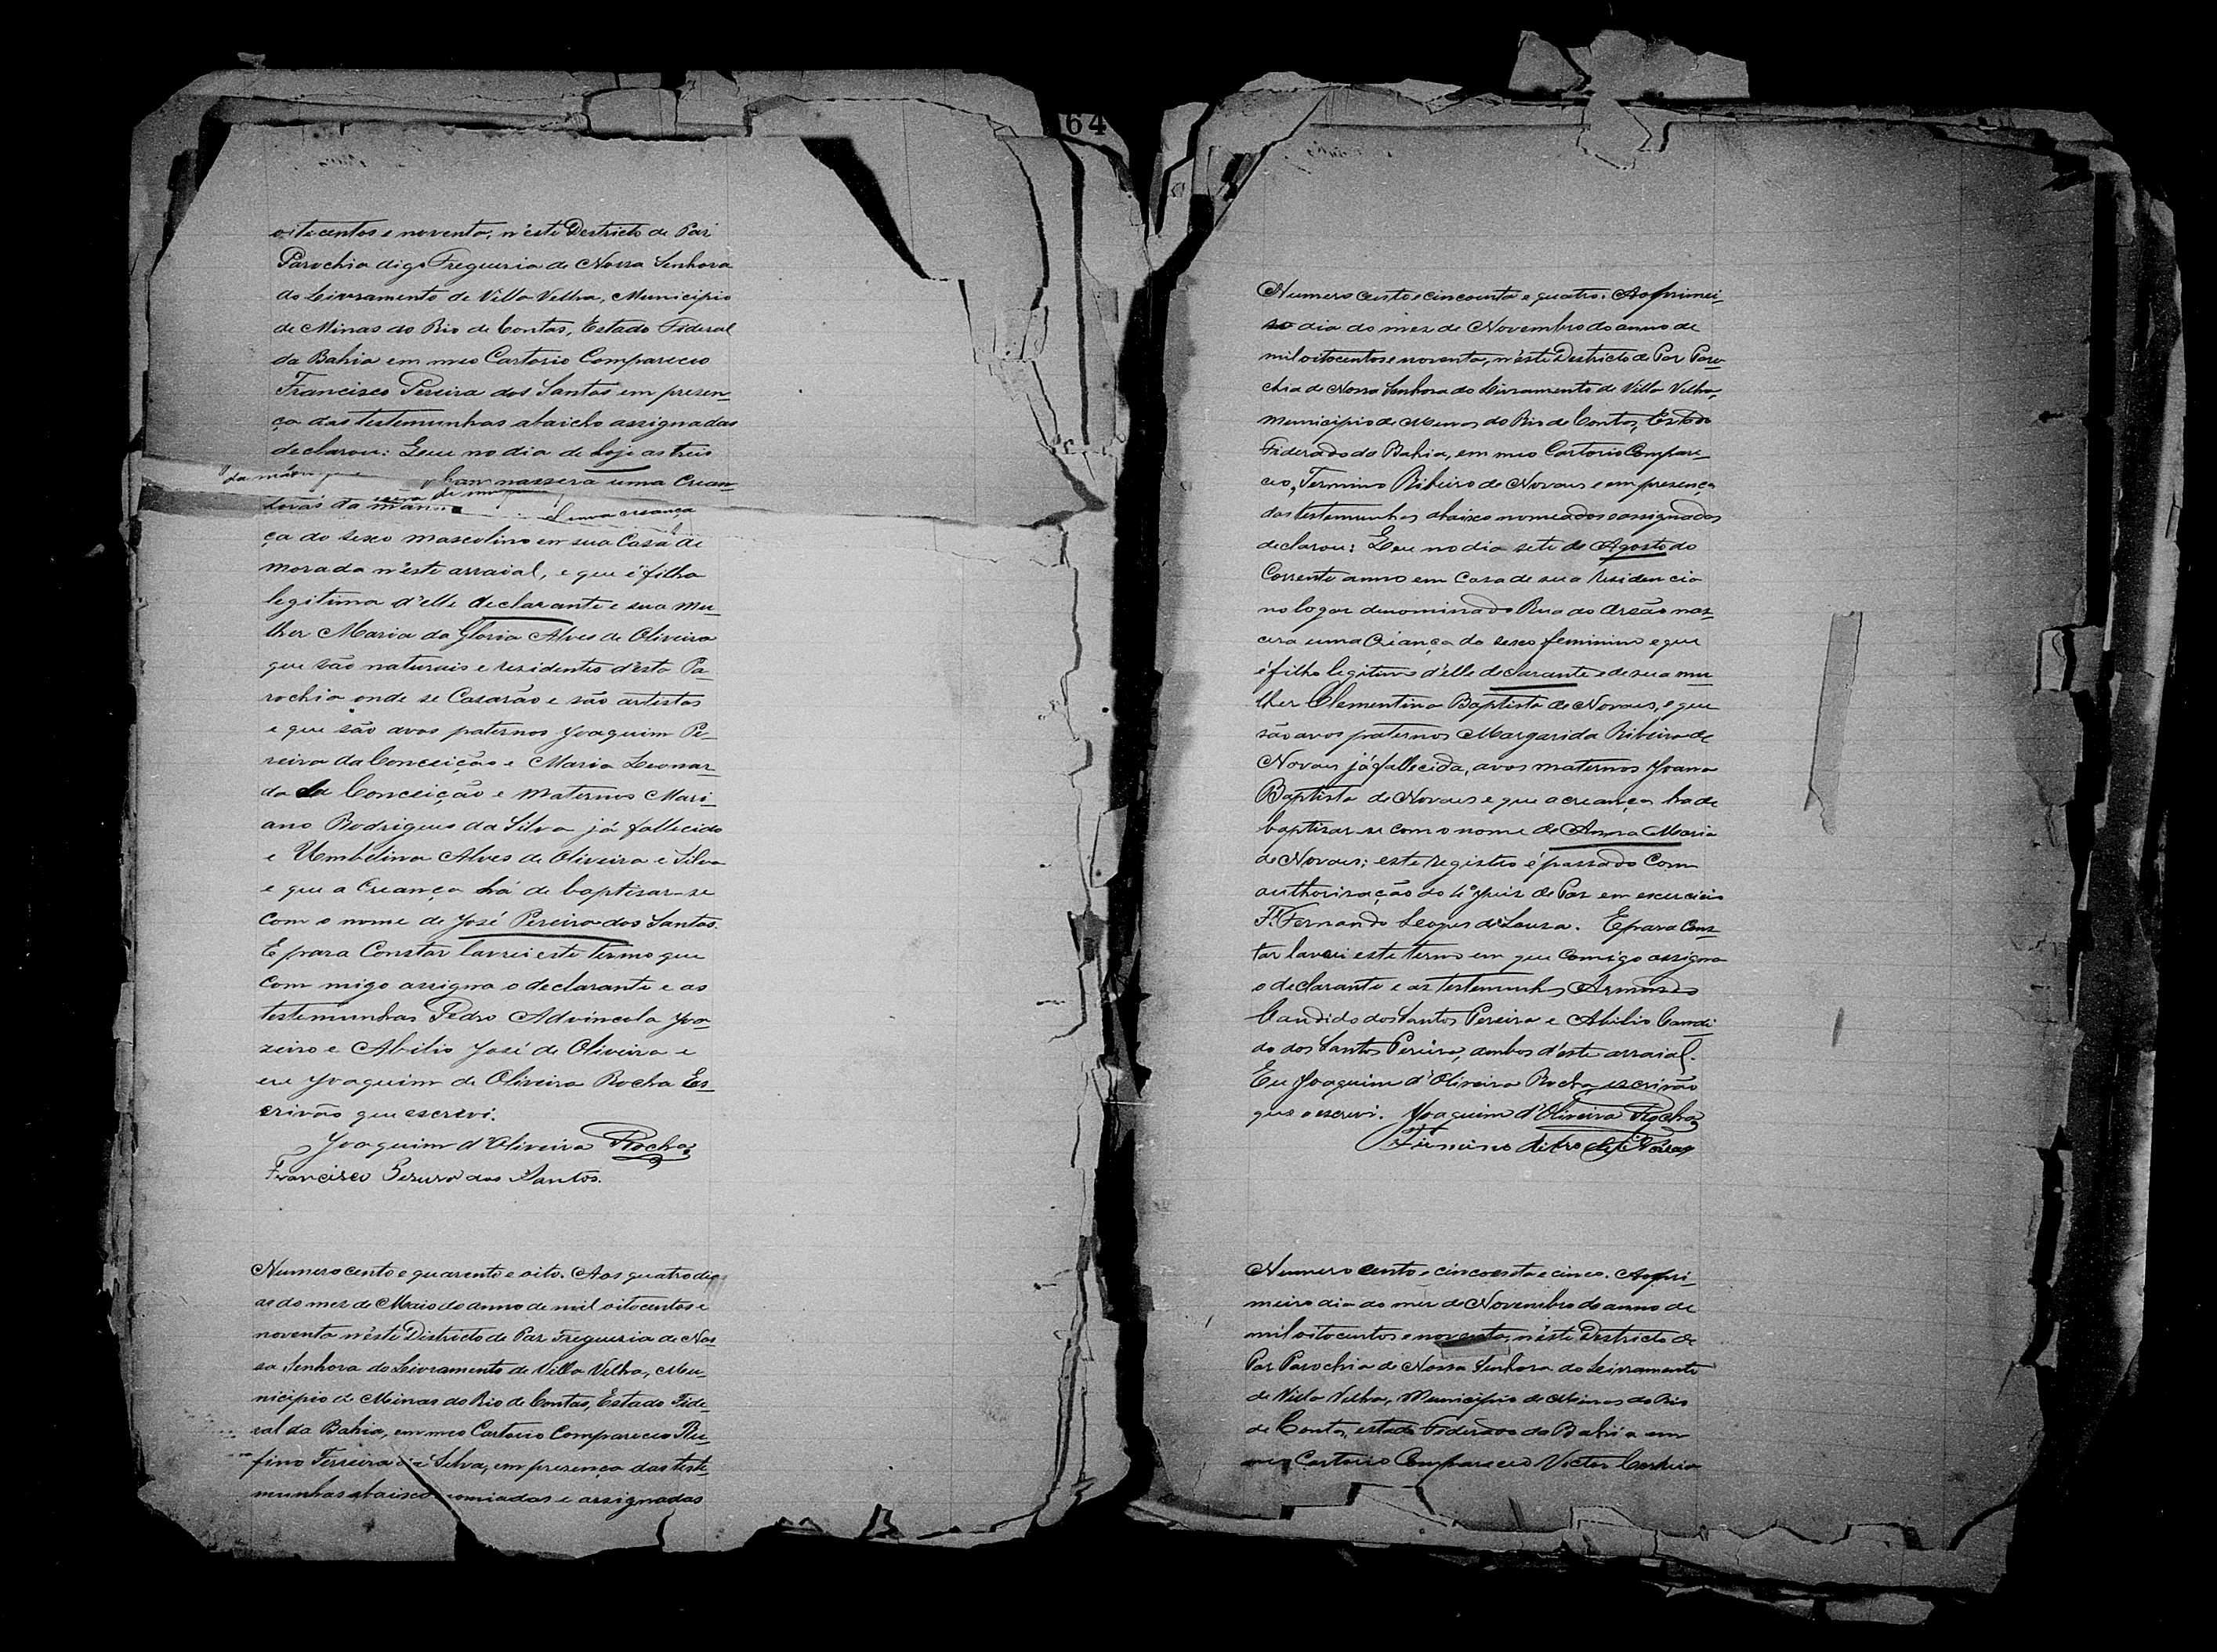 64
oitocentos e noventa, n'este Destricto de Paz
Parochia digo Freguesia de Nossa Senhora
do Livramento de Villa Velha, Municipio
de Minas do Rio de Contas, Estado Federal
da Bahia em meo Cartorio Compareceo
Francisco Pereira dos Santos em presen-
ça das testemunhas abaicho assignadas
declarou: Que no dia de hoje as treis
da manhan nascera uma Crean-
horas da
uma creança
ça do sexo mascolino em sua Casa de
morada n'este arraial, e que é filho
legitimo d'elle declarante e sua mu-
lher Maria da Gloria Alves de Oliveira
que são naturais e residentes d'esta Pa-
rochia onde se Casarão e são artistas
e que são avos paternos Joaquim Pe-
reira da Conceição e Maria Leonar-
da da Conceição e maternos Mari-
ano Rodrigues da Silva já fallecido
e Umbelina Alves de Oliveira e Silva
e que a Creança há de baptisar-se
com o nome de José Pereira dos Santos.
E para Constar lavrei este termo que
Com migo assigna o declarante e as
testemunhas Pedro Advincola Joa-
zeiro e Abilio José de Oliveira e
eu Joaquim de Oliveira Rocha Es-
crivão que escrevi.
Joaquim d'Oliveira Rocha
Francisco Pereira dos Santos.
Numero cento e quarenta e oito. Aos quatro di-
as do mez de Maio do anno de mil oitocentos e
noventa n'este Districto de Paz Freguezia de Nos-
sa Senhora do Livramento de Villa Velha, Mu-
nicipio de Minas do Rio de Contas, Estado Fide-
ral da Bahia, em meo Cartorio Compareceo Ru-
fino Ferreira da Silva, em presença das teste-
munhas abaixo nomiadas e assignadas
Numero cento e cincoenta e quatro. Ao primei-
ro dia do mez de Novembro do anno de
mil oitocentos e noventa, n'este Destricto de Paz Paro-
chia de Nossa Senhora do Livramento de Villa Velha,
Municipio de Minas do Rio de Contas, Estado
Federado da Bahia, em meo Cartorio Compare-
ceo, Fermino Ribeiro de Novais e em presença
das testemunhas abaixo nomeados e assignados
declarou: Que no dia sete de Agosto do
Corrente anno em Casa de sua residencia
no logar denominado Rua do Areão nas-
cera uma Criança do sexo feminino e que
é filha legitima d'elle declarante e de sua mu-
lher Clementina Baptista de Novaes, e que
são avos paternos Margarida Ribeiro de
Novaes já fallecida, avos maternos Joana
Baptista de Novaes e que a creança ha de
baptisar-se com o nome de Anna Maria
de Novaes; este registro é passado Com
authorisação do 4º Juiz de Paz em exercicio
Fernando Lopes de Souza. E para Cons-
tar lavrei este termo em que Comigo assigna
o declarante e as testemunhas Armindo
Candido dos Santos Pereira e Abilio Candi-
do dos Santos Pereira, ambos d'este arraial.
Eu Joaquim d'Oliveira Rocha escrivão
que o escrevi. Joaquim d'Oliveira Rocha
Firmino Ribro de Novaes
Numero cento e cincoenta e cinco. Ao pri-
meiro dia do mez de Novembro do anno de
mil oitocentos e noventa, n'este Destricto de
Paz Parochia de Nossa Senhora do Livramento
de Villa Velha, Municipio de Minas do Rio
de Contas, estado Federado da Bahia em
meo Cartorio Compareceo Victor Correia